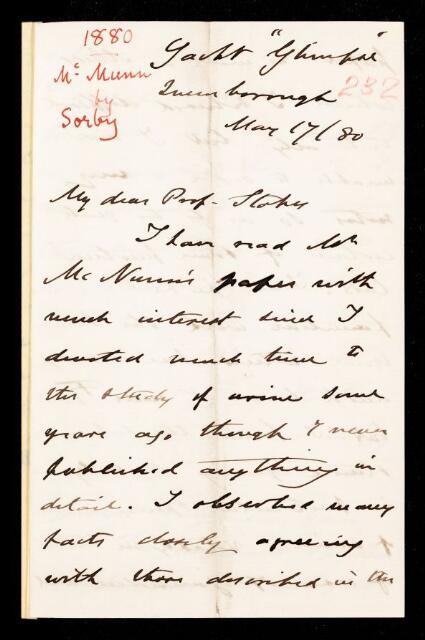 1880
McMunn
by
Sorby
Yacht "Glimpse"
Queenborough
232
May 17/80
My dear Prof. Stokes
I have read Mr
McMunn's paper with
much interest since I
devoted much time to
the study of urine some
years ago though I never
published anything in
detail. I observed many
facts closely agreeing
with those described in the